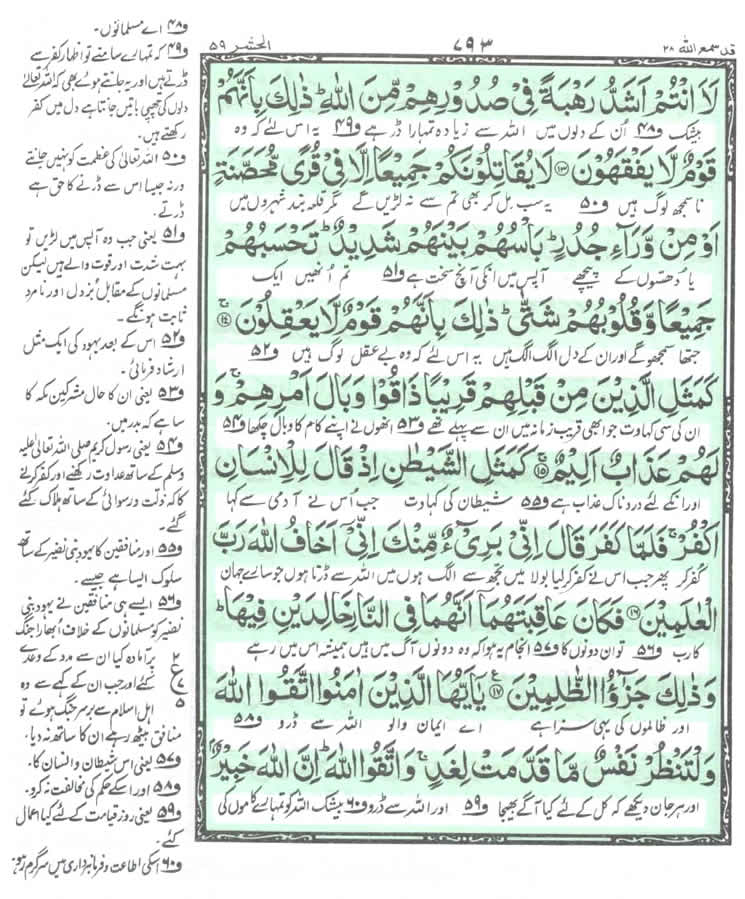 قد سمع الله ۲۸
۷۹۳
الحشر ۵۹
لَا۠اَنْتُمْ اَشَدُّ رَهْبَةً فِیْ صُدُوْرِهِمْ مِّنَ اللّٰهِ ؕ ذٰلِكَ بِاَنَّهُمْ
بیشک و۴۸ اُن کے دلوں میں اللہ سے زیادہ تمہارا ڈر ہے و۴۹ یہ اس لئے کہ وہ
قَوْمٌ لَّا یَفْقَهُوْنَ ۝۱۳ لَا یُقَاتِلُوْنَكُمْ جَمِیْعًا اِلَّا فِیْ قُرًی مُّحَصَّنَةٍ
ناسمجھ لوگ ہیں و۵۰ یہ سب مل کر بھی تم سے نہ لڑیں گے مگر قلعہ بند شہروں میں
اَوْ مِنْ وَّرَآءِ جُدُرٍ ؕ بَاْسُهُمْ بَیْنَهُمْ شَدِیْدٌ ؕ تَحْسَبُهُمْ
یا دُھسّوں کے پیچھے آپس میں انکی آنچ سخت ہے و۵۱ تم انھیں ایک
جَمِیْعًا وَّ قُلُوْبُهُمْ شَتّٰی ؕ ذٰلِكَ بِاَنَّهُمْ قَوْمٌ لَّا یَعْقِلُوْنَ ۝۱۴ۚ
جتھا سمجھو گے اور ان کے دل الگ الگ ہیں یہ اس لئے کہ وہ بے عقل لوگ ہیں و۵۲
كَمَثَلِ الَّذِیْنَ مِنْ قَبْلِهِمْ قَرِیْبًا ذَاقُوْا وَبَالَ اَمْرِهِمْ ۚ وَ
ان کی سی کہاوت جو ابھی قریب زمانہ میں ان سے پہلے تھے و۵۳ انھوں نے اپنے کام کا وبال چکھا و۵۴
لَهُمْ عَذَابٌ اَلِیْمٌ ۝۱۵ۚ كَمَثَلِ الشَّیْطٰنِ اِذْ قَالَ لِلْاِنْسَانِ
اور انکے لئے دردناک عذاب ہے و۵۵ شیطان کی کہاوت جب اُس نے آدمی سے کہا
اكْفُرْ ۚ فَلَمَّا كَفَرَ قَالَ اِنِّیْ بَرِیْٓءٌ مِّنْكَ اِنِّیْۤ اَخَافُ اللّٰهَ رَبَّ
کفر کر پھر جب اس نے کفر کر لیا بولا میں تجھ سے الگ ہوں میں اللہ سے ڈرتا ہوں جو سارے جہان
الْعٰلَمِیْنَ ۝۱۶ فَكَانَ عَاقِبَتَهُمَاۤ اَنَّهُمَا فِی النَّارِ خَالِدَیْنِ فِیْهَا ؕ
کا رب و۵۶ تو ان دونوں کا و۵۷ انجام یہ ہوا کہ وہ دونوں آگ میں ہیں ہمیشہ اس میں رہے
وَ ذٰلِكَ جَزٰٓؤُا الظّٰلِمِیْنَ ۝۱۷ یٰۤاَیُّهَا الَّذِیْنَ اٰمَنُوا اتَّقُوا اللّٰهَ
اور ظالموں کی یہی سزا ہے اے ایمان والو اللہ سے ڈرو و۵۸
وَ لْتَنْظُرْ نَفْسٌ مَّا قَدَّمَتْ لِغَدٍ ۚ وَ اتَّقُوا اللّٰهَ ؕ اِنَّ اللّٰهَ خَبِیْرٌۢ
اور ہر جان دیکھے کہ کل کے لئے کیا آگے بھیجا و۵۹ اور اللہ سے ڈرو و۶۰ بیشک اللہ کو تمہارے کاموں کی
و۴۸ اے مسلمانوں۔
و۴۹ کہ تمہارے سامنے تو اظہار کفر سے
ڈرتے ہیں اور یہ جانتے ہوئے بھی کہ اللہ تعالیٰ
دلوں کی چھپی باتیں جانتا ہے دل میں کفر
رکھتے ہیں۔
و۵۰ اللہ تعالیٰ کی عظمت کو نہیں جانتے
ورنہ جیسا اس سے ڈرنے کا حق ہے
ڈرتے۔
و۵۱ یعنی جب وہ آپس میں لڑیں تو
بہت شدت اور قوت والے ہیں لیکن
مسلمانوں کے مقابل بُزدل اور نامرد
ثابت ہونگے۔
و۵۲ اس کے بعد یہود کی ایک مثل
ارشاد فرمائی۔
و۵۳ یعنی ان کا حال مشرکین مکہ کا
سا ہے کہ بدر میں۔
و۵۴ یعنی رسول کریم صلی اللہ تعالیٰ علیہ
وسلم کے ساتھ عداوت رکھنے اور کفر کرنے
کا کہ ذلت و رسوائی کے ساتھ ہلاک کئے
گئے۔
و۵۵ اور منافقین کا یہود بنی نضیر کے ساتھ
سلوک ایسا ہے جیسے۔
و۵۶ ایسے ہی منافقین نے یہود بنی
نضیر کو مسلمانوں کے خلاف اُبھارا جنگ
پر آمادہ کیا ان سے مدد کے وعدے
کئے اور جب ان کے کہے سے وہ
اہل اسلام سے برسر جنگ ہوئے تو
منافق بیٹھ رہے ان کا ساتھ نہ دیا۔
و۵۷ یعنی اس شیطان و انسان کا۔
و۵۸ اور اسکے حکم کی مخالفت نہ کرو۔
و۵۹ یعنی روز قیامت کے لئے کیا اعمال
کئے۔
و۶۰ اسکی اطاعت و فرمانبرداری میں سرگرم رہو۔